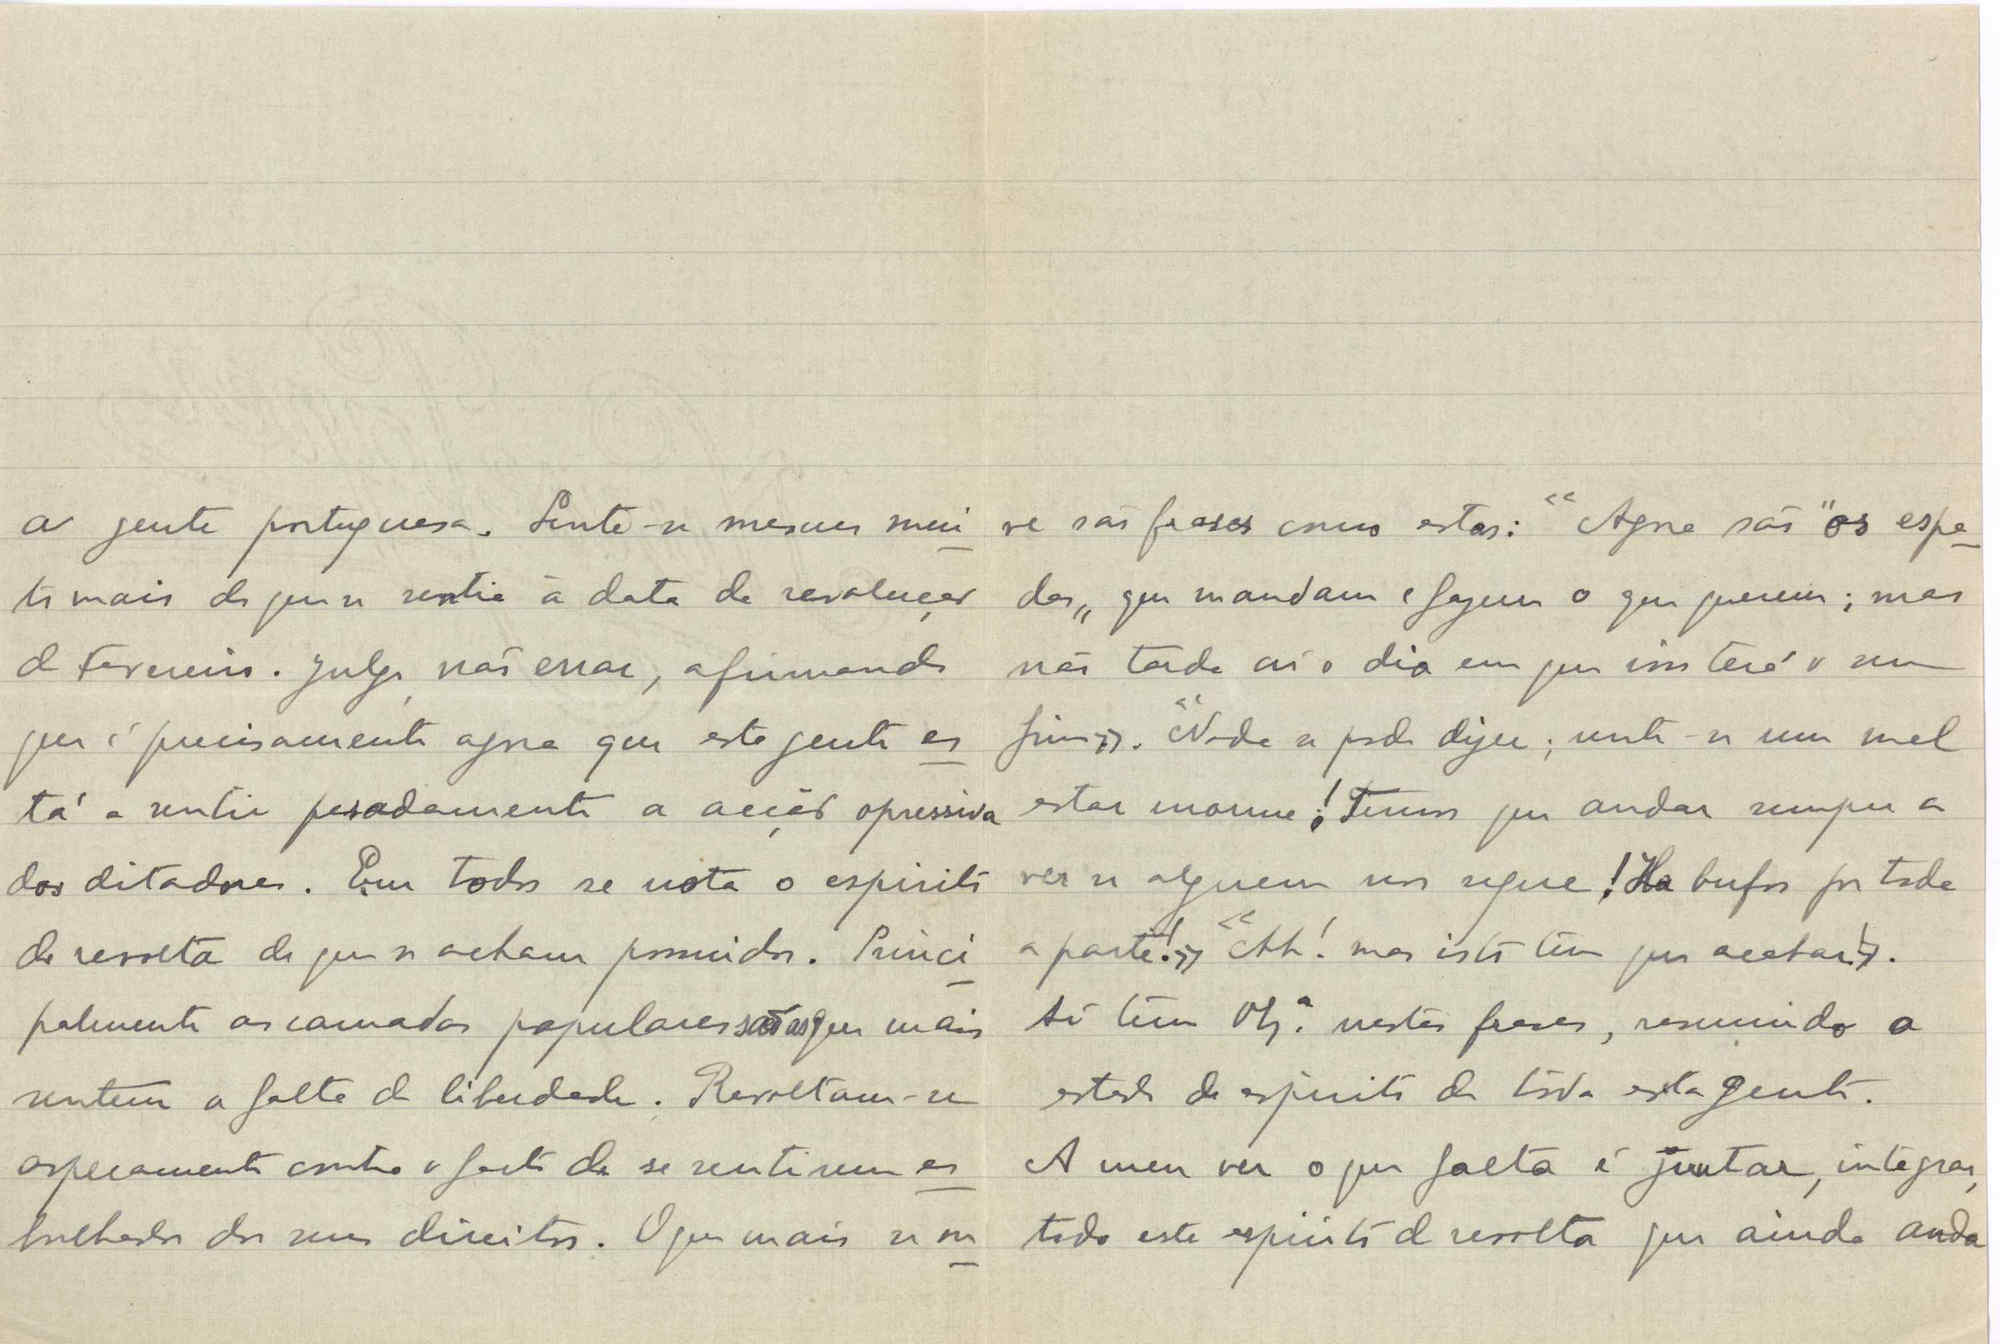 a gente portuguesa. Sente-se mesmo mui
to mais do que se sentia à data da revolução
de Fevereiro. Julgo não errar, afirmando
que é precisamente agora que esta gente es
tá a sentir pesadamente a acção opressiva
dos ditadores. Em todos se nota o espirito
de revolta de que se acham possuidos. Princi
palmente as camadas populares são as que mais
sentem a falta de liberdade. Revoltam-se
asperamente contra o facto de se sentirem es
bulhados dos seus direitos. O que mais se ou
ve são frases como estas: "Agora são "os espa
das" que mandam e fazem o que querem; mas
não tarda aí o dia em que isso terá o seu
fim». "Nada se pode dizer; sente-se um mal
estar enorme! Temos que andar sempre a
ver se alguem nos segue! Ha bufos por toda
a parte!» "Ah! mas isto tem que acabar!».
Aí tem V. nestas frases, resumindo o
estado de espirito de tôda esta gente.
A meu ver o que falta é juntar, integrar,
todo este espirito de revolta que ainda anda